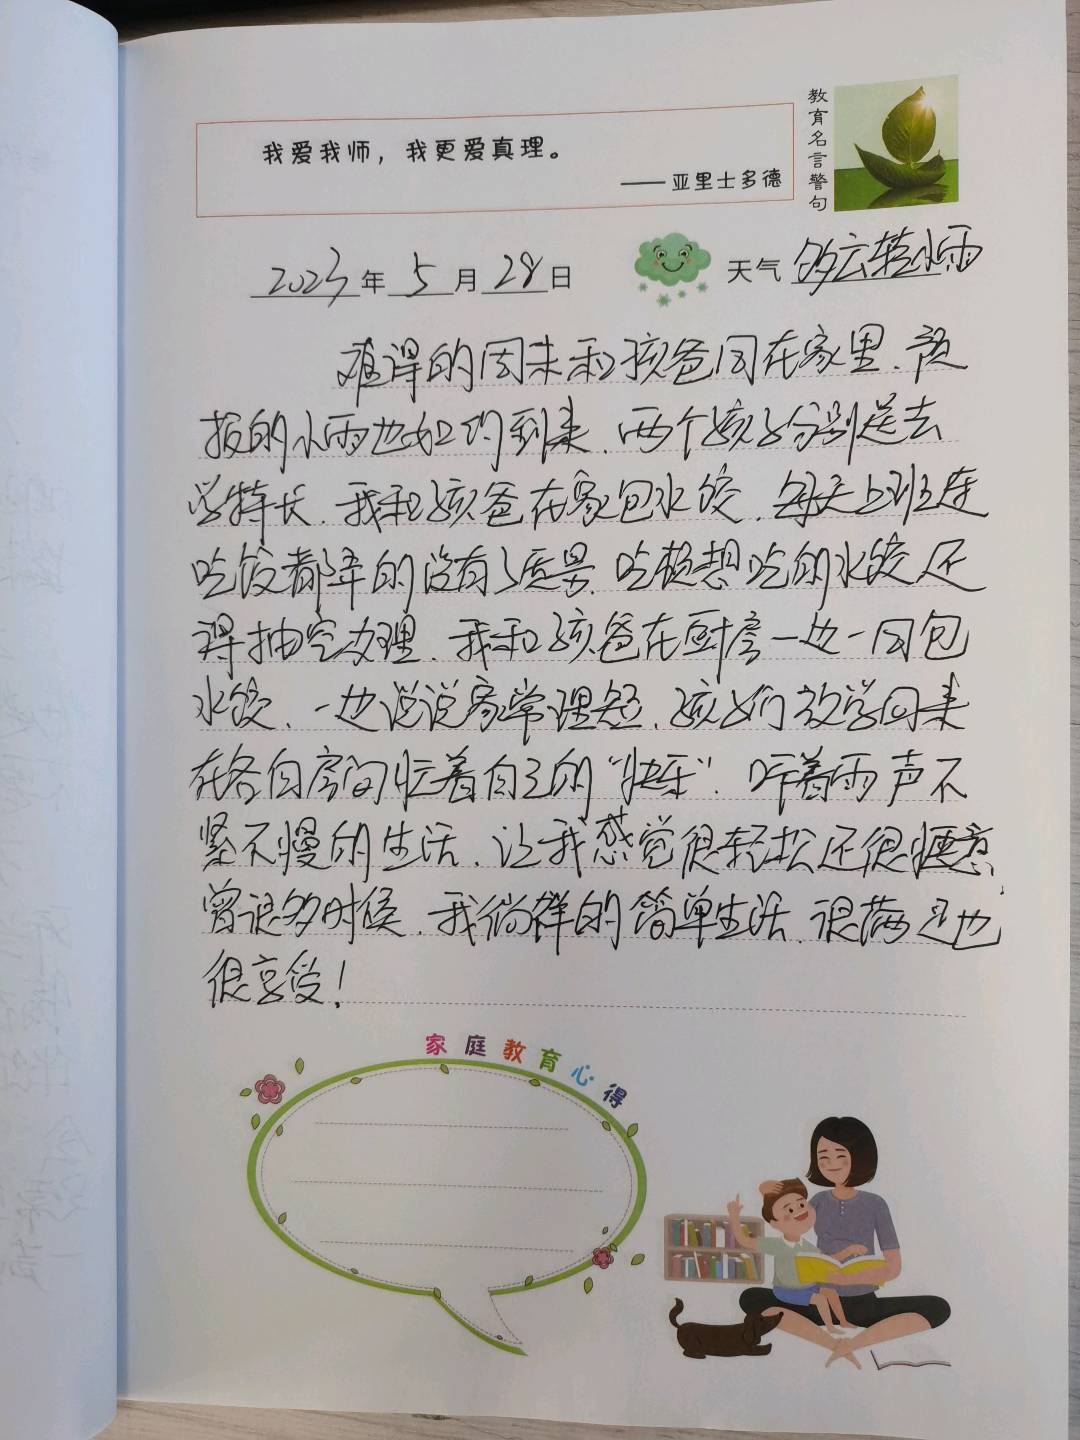 教育名言警句
我爱我师，我更爱真理。
——亚里士多德
2023年5月28日 天气 多云转小雨
难得的周末和孩爸同在家里.预
报的小雨也如约到来.两个孩子分别送去
学特长.我和孩爸在家包水饺.每天上班连
吃饭都弄的没有了质量.吃顿想吃的水饺还
得抽空办理.我和孩爸在厨房一边一同包
水饺.一边说说家常理短.孩子们放学回来
在各自房间忙着自己的“快乐”.听着雨声不
紧不慢的生活.让我感觉很轻松还很惬意.
曾很多时候.我倘佯的简单生活.很满足也
很享受！
家庭教育心得